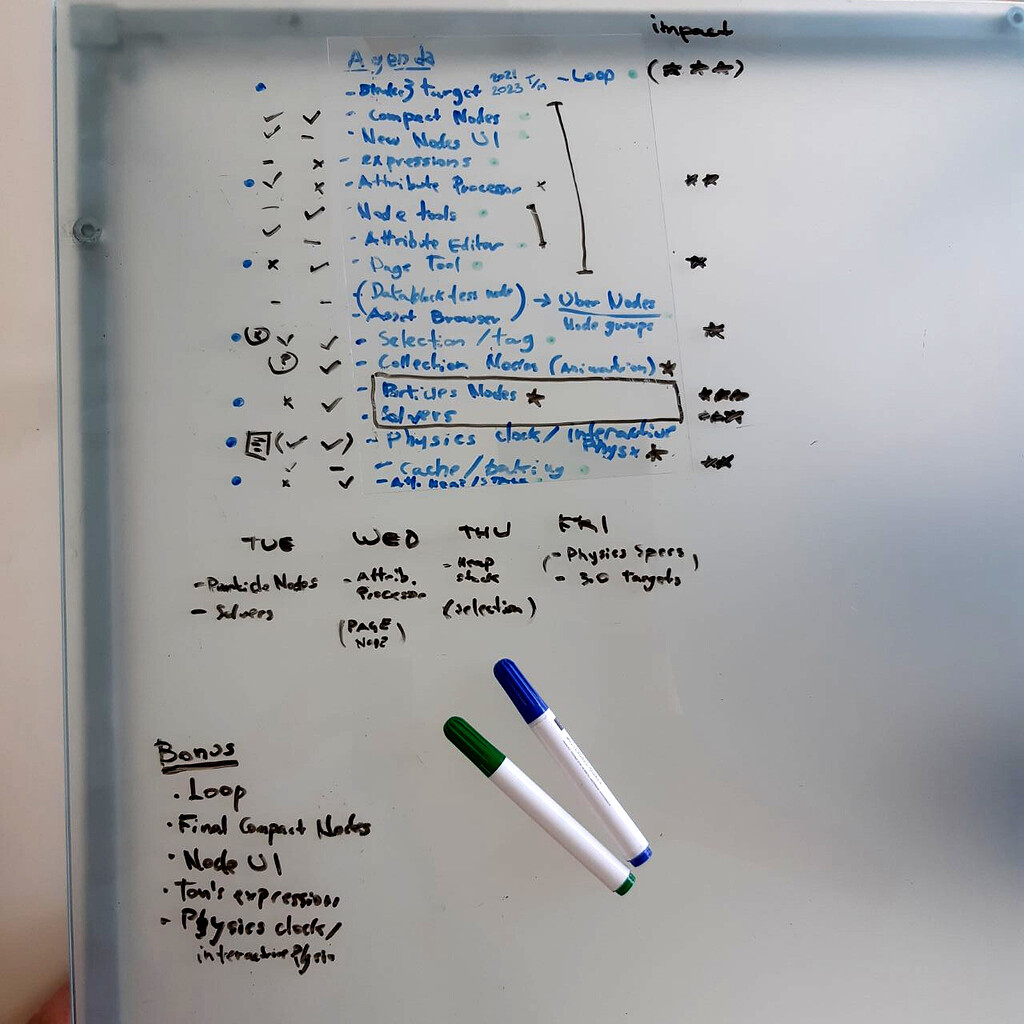 impact
Agenda
- target 2021 2023 - Loop (★★★)
- Compact Nodes
- New Nodes UI
- expressions
- Attribute Processor × ★★
- Node tools
- Attribute Editor
- Page Tool ★
(Datablockless node) → Uber Nodes
- Asset Browser Node groups
- Selection / tag ★
- Collection Nodes (Animation) ★
- Particles Nodes ★ ★★★
- Solvers ★★★
- Physics clock / interactive
Physx ★
- Cache / baking ★★
- Att. Heap / Stack
TUE WED THU FRI
- Particle Nodes
- Solvers
- Attrib.
Processor
(PAGE
)
- Heap
stack
(selection)
(- Physics Specs)
- 3.0 targets
Bonus
• Loop
• Final Compact Nodes
• Node UI
• Tom's expression
- Physics clock /
interactive